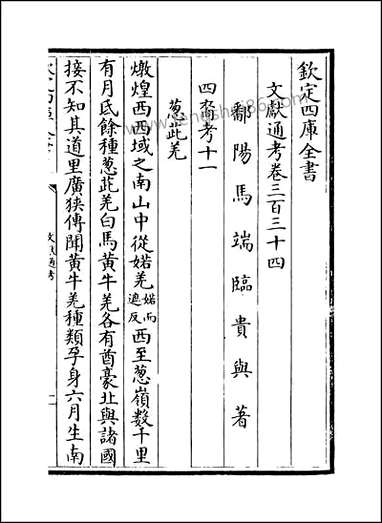 欽定四庫全書
文獻通考卷三百三十四
鄱陽馬端臨貴與著
四裔考十一
葱茈羌
燉煌西西域之南山中從婼羌婼而遮反西至葱嶺數千里
有月氐餘種葱茈羌白馬黃牛羌各有酋豪北與諸國
接不知其道里廣狹傳聞黃牛羌種類孕身六月生南
文獻通考